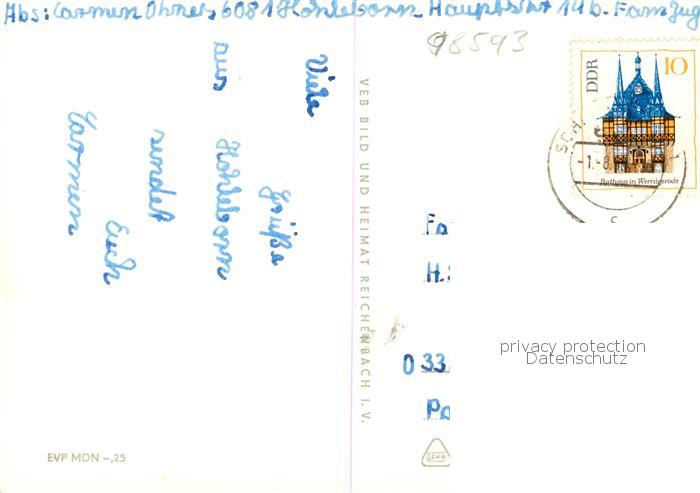 Abs: Carmen 6081 Hohleborn Hauptstr 14b.
98593
DDR
10
Rathaus in Wernigerode
-1.-8
c
Viele
Grüße
aus Hohleborn
sendet
Euch
Carmen
VEB BILD UND HEIMAT REICHENBACH I. V.
Fa
H.
0 33
Po
privacy protection
Datenschutz
DAMW
EVP MDN –,25